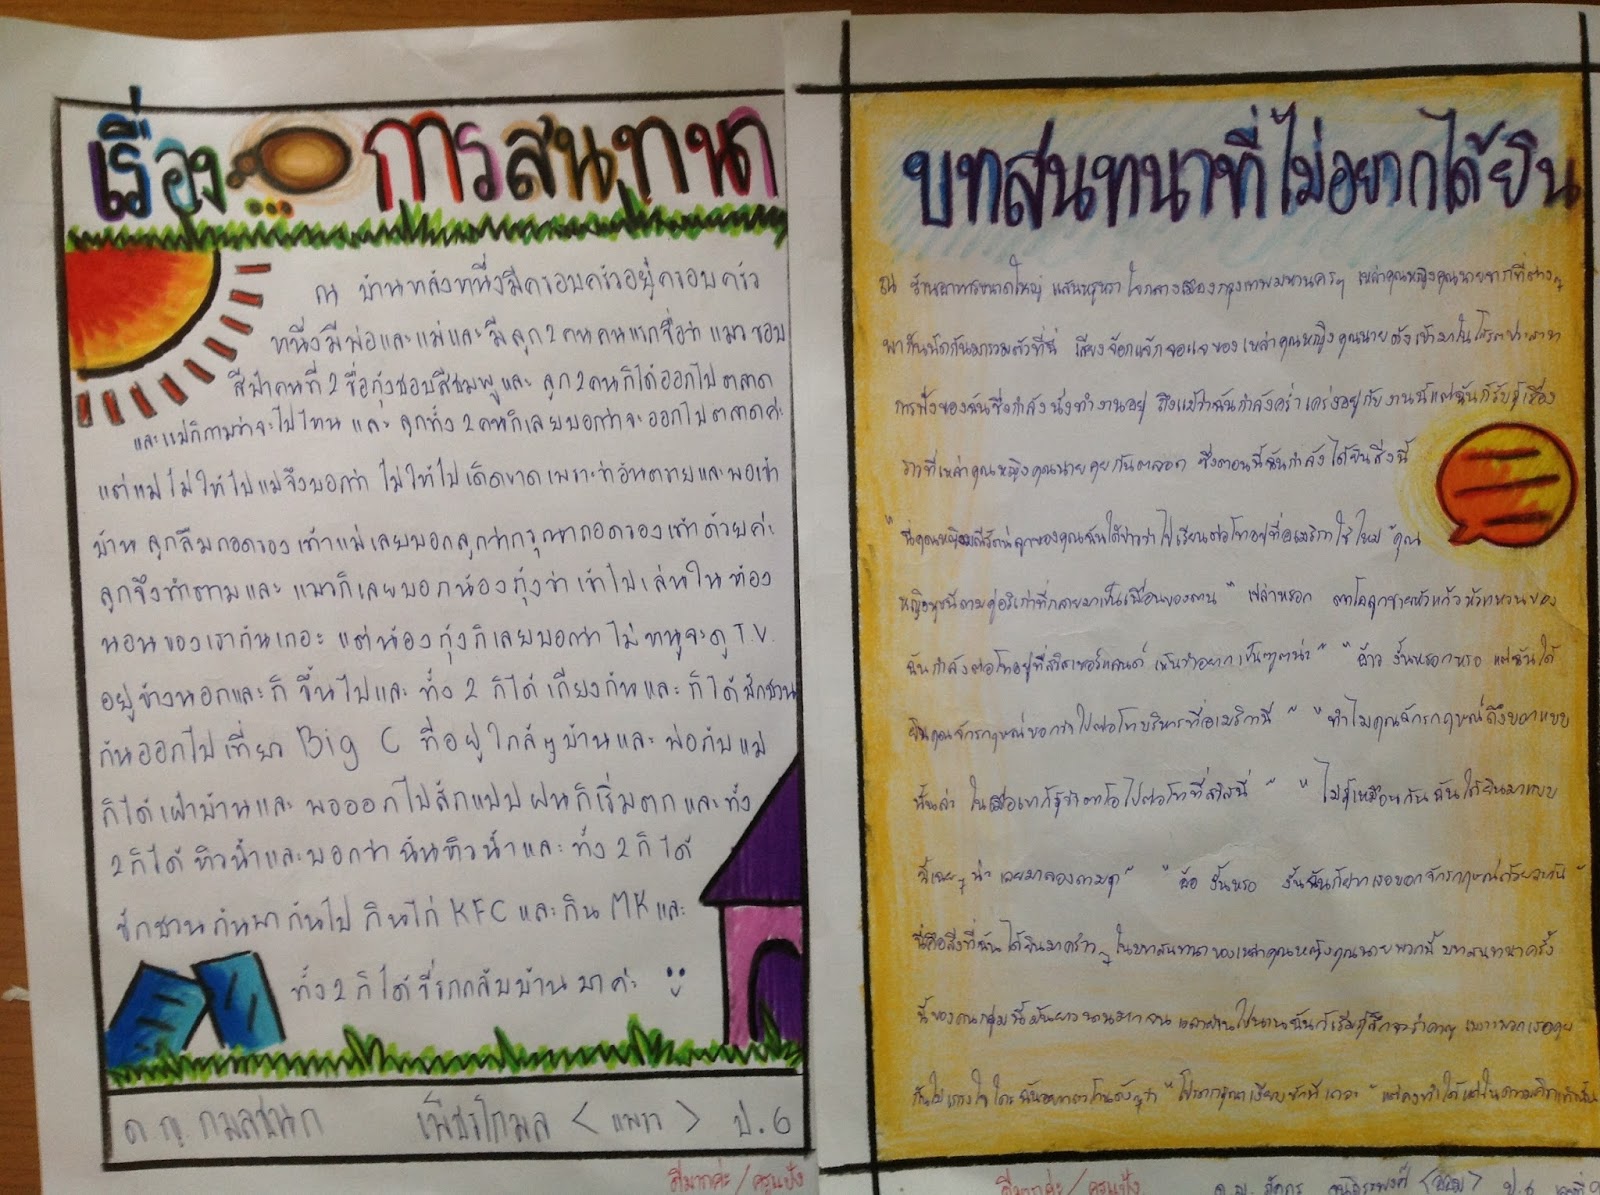 เรื่อง การสนทนา
ณ บ้านหลังหนึ่งมีครอบครัวอยู่ครอบครัว
หนึ่งมีพ่อและแม่และมีลูก 2 คนคนแรกชื่อว่า แพรว ชอบ
สีฟ้าคนที่ 2 ชื่อกุ้งชอบสีชมพูและ ลูก 2 คนก็ได้ออกไปตลาด
และแม่ก็ถามว่าจะไปไหน และ ลูกทั้ง 2 คนก็เลยบอกว่าจะออกไปตลาดค่ะ
แต่แม่ไม่ให้ไปแม่จึงบอกว่า ไม่ให้ไปเด็ดขาดเพราะว่าอันตรายและพอเข้า
บ้าน ลูกลืมถอดรองเท้าแม่เลยบอกลูกว่ากรุณาถอดรองเท้าด้วยค่ะ
ลูกจึงทำตามและ แพรวก็เลยบอกน้องกุ้งว่า เข้าไปเล่นในห้อง
นอนของเรากันเถอะ แต่น้องกุ้งก็เลยบอกว่า ไม่หนูจะดู T.V.
อยู่ข้างนอกและก็ ขึ้นไปและ ทั้ง 2 ก็ได้เถียงกันและก็ได้ชักชวน
กันออกไปเที่ยว Big C ที่อยู่ใกล้ๆบ้านและ พ่อกับแม่
ก็ได้เฝ้าบ้านและ พอออกไปสักแปปฝนก็เริ่มตก และทั้ง
2 ก็ได้ หิวน้ำและบอกว่า ฉันหิวน้ำและ ทั้ง 2 ก็ได้
ชักชวนกันพากันไป กินไก่ KFC และกิน MK และ
ทั้ง 2 ก็ได้รีบกลับบ้าน มาค่ะ
ด.ญ. กมลชนก เพ็ชรโกมล <แพรว> ป.6
ดีมากค่ะ/ครูแป้ง
บทสนทนาที่ไม่อยากได้ยิน
ณ ร้านอาหารขนาดใหญ่ แสนหรูหรา ใจกลางเมืองกรุงเทพมหานครฯ เหล่าคุณหญิงคุณนาย
พากันนัดกันมารวมตัวที่นี่ เสียงจ้อกแจ้กจอแจของเหล่าคุณหญิงคุณนายดังเข้ามาในโสตประสาท
การฟังของฉันซึ่งกำลังนั่งทำงานอยู่ ถึงแม้ว่าฉันกำลังคร่ำเคร่งอยู่กับงานนี้แต่ฉันก็รับรู้เรื่อง
ราวที่เหล่าคุณหญิงคุณนายคุยกันตลอด ซึ่งตอนนี้ฉันกำลังได้ยินสิ่งนี้
"นี่คุณหญิงมณีรัตน์ลูกของคุณฉันได้ข่าวว่าไปเรียนต่อโทอยู่ที่อเมริกาใช่ไหม" คุณ
หญิงนุชนีถามคู่อริเก่าที่กลายมาเป็นเพื่อนของตน " เปล่าหรอก ตาโตลูกชายหัวแก้วหัวแหวนของ
ฉันกำลังต่อโทอยู่ที่สวิตเซอร์แลนด์ " "อ้าว งั้นหรอกหรอ แต่ฉันได้
ยินคุณจักรกฤษณ์บอกว่าไปต่อโทบริหารที่อเมริกานี่" "ทำไมคุณจักรกฤษณ์ถึงบอกแบบ
นั้นล่ะ ในเมื่อเขาก็รู้ว่าตาโตไปต่อโทที่สวิสนี่" "ไม่รู้เหมือนกันฉันได้ยินมาแบบ
นี้ เลยมาลองถามดู" "อ๋อ งั้นหรอ งั้นฉันก็ฝากเธอบอกจักรกฤษณ์ด้วยละกัน"
นี่คือสิ่งที่ฉันได้ยินมาคร่าวๆ ในบทสนทนาของเหล่าคุณหญิงคุณนายพวกนี้ บทสนทนาครั้ง
นี้ของคนกลุ่มนี้มันยาวนานมากจน เวลาผ่านไปนานฉันก็เริ่มรู้สึกจะรำคาญ เพราะพวกเธอคุย
กันไม่เกรงใจใคร ฉันอยากตะโกนดังๆว่า "โปรดกรุณาเงียบซักทีเถอะ" แต่คงทำได้แต่ในความคิดเท่านั้น
ดีมากค่ะ/ครูแป้ง
ด.ญ. ป.6